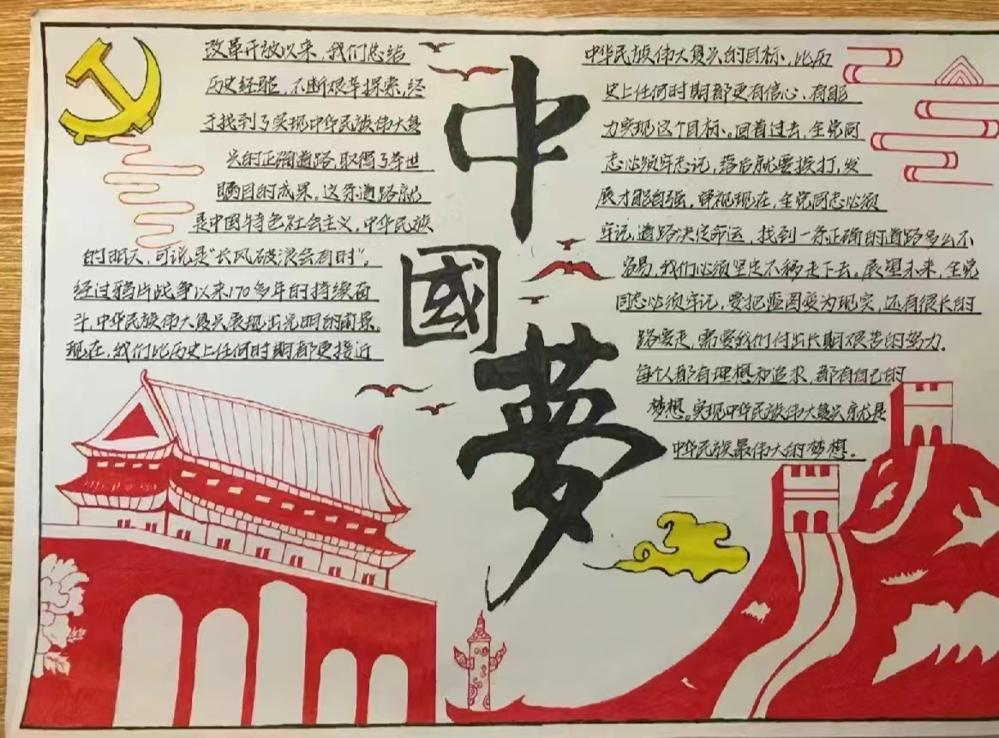 改革开放以来，我们总结
历史经验，不断艰辛探索，终
于找到了实现中华民族伟大复
兴的正确道路，取得了举世
瞩目的成果。这条道路就
是中国特色社会主义，中华民族
的明天，可说是“长风破浪会有时”。
经过鸦片战争以来170多年的持续奋
斗，中华民族伟大复兴展现出光明的前景。
现在，我们比历史上任何时期都更接近
中
國
夢
中华民族伟大复兴的目标，比历
史上任何时期都更有信心，有能
力实现这个目标。回首过去，全党同
志必须牢志记，落后就要挨打，发
展才能自强，审视现在，全党同志必须
牢记，道路决定命运，找到一条正确的道路多么不
容易，我们必须坚定不移走下去，展望未来，全党
同志必须牢记，要把蓝图变为现实，还有很长的
路要走，需要我们付出长期艰苦的努力。
每个人都有理想和追求，都有自己的
梦想。实现中华民族伟大复兴就是
中华民族最伟大的梦想。